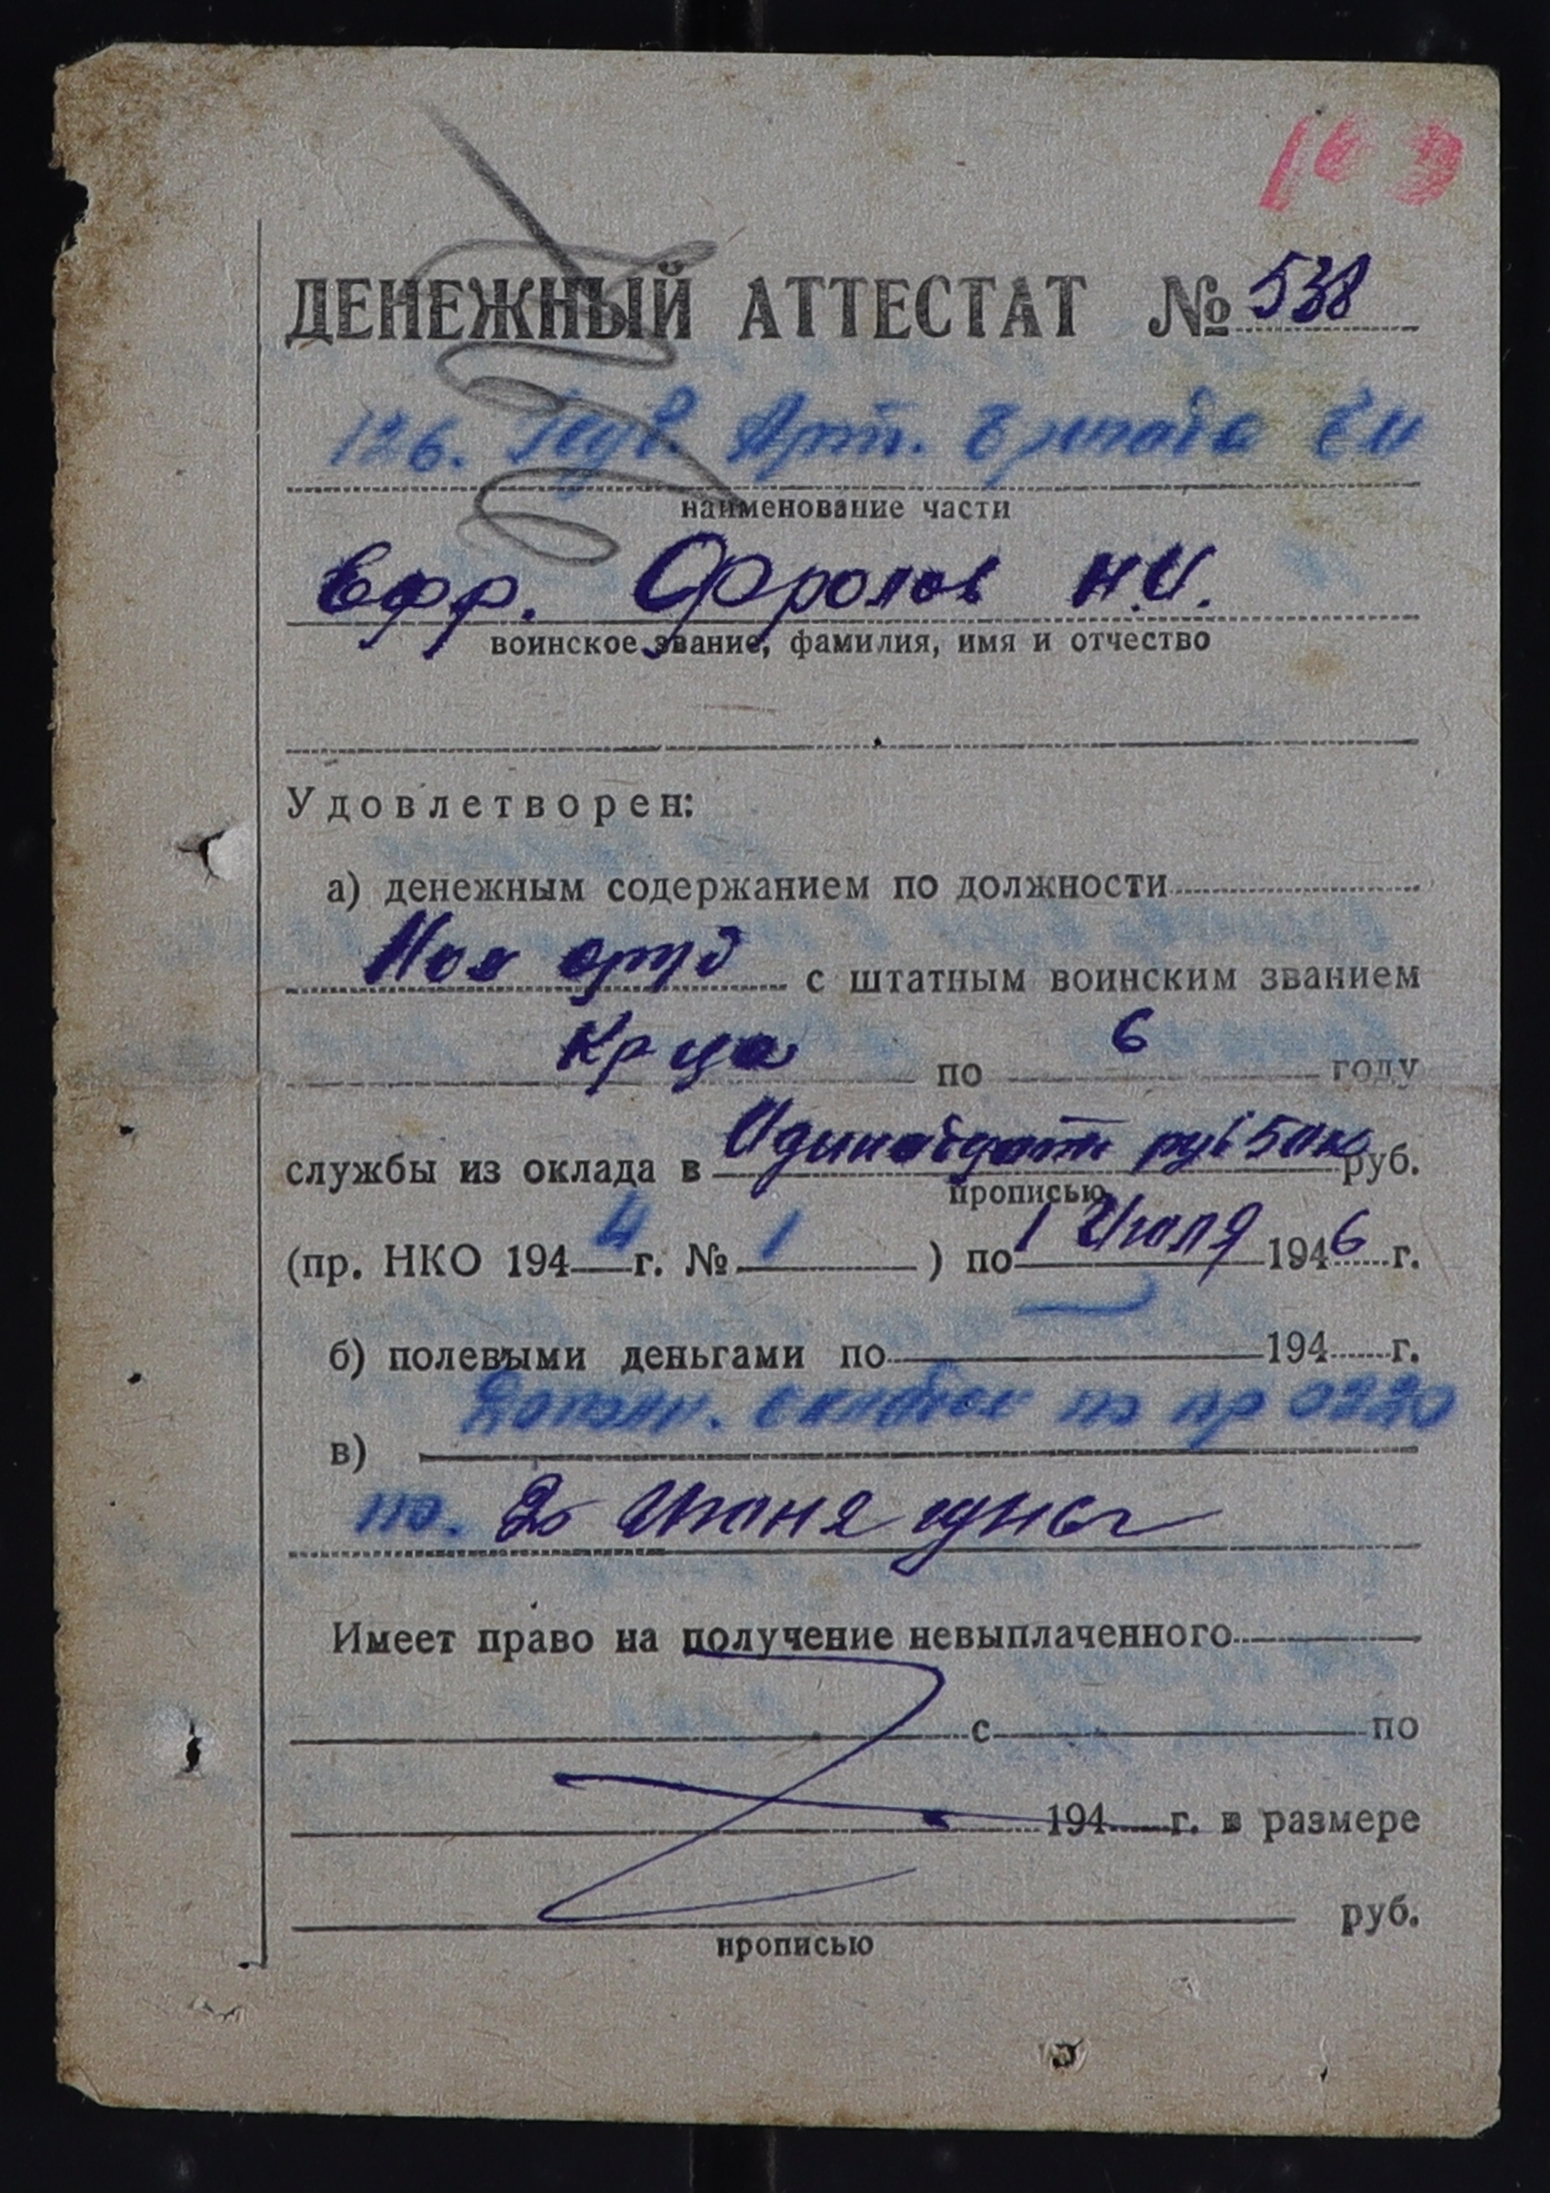 ДЕНЕЖНЫЙ АТТЕСТАТ № 538
126. Арт. бригада
наименование части
Ефр. Фролов Н.И.
воинское звание, фамилия, имя и отчество
Удовлетворен:
а) денежным содержанием по должности
с штатным воинским званием
Кр-ца по 6 году
службы из оклада в Одинадцать руб 50 к руб.
прописью
(пр. НКО 1944 г. № 1 ) по 1 Июля 1946 г.
б) полевыми деньгами по — 194 г.
в) по пр 0220
по. Июня
Имеет право на получение невыплаченного
с по
194 г. в размере
руб.
прописью